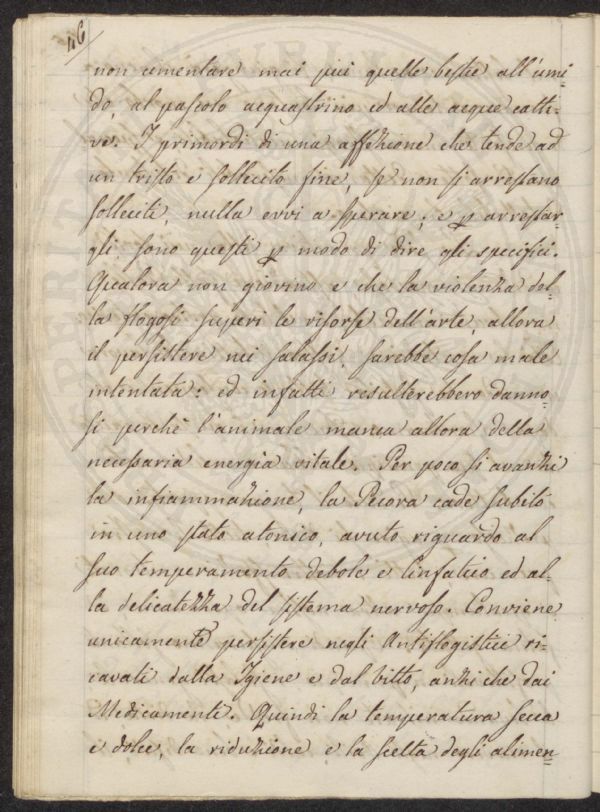 46
non cimentare mai più quelle bestie all'umi=
do, al pascolo acquastrino ed alle acque catti=
ve. I primordi di una affezione che tende ad
un tristo e sollecito fine, se non si arrestano
solleciti, nulla evvi a sperare; e p arrestar=
gli sono questi p modo di dire gli specifici.
Qualora non giovino e che la violenza del=
la flogosi superi le risorse dell'arte, allora
il persistere nei salassi, sarebbe cosa male
intentata: ed infatti resulterebbero danno=
si perchè l'animale manca allora della
necessaria energia vitale. Per poco si avanzi
la infiammazione, la Pecora cade subito
in uno stato atonico, avuto riguardo al
suo temperamento debole e linfatico ed al=
la delicatezza del sistema nervoso. Conviene
unicamente persistere negli Antiflogistici ri=
cavati dalla Igiene e dal vitto, anzi che dai
Medicamenti. Quindi la temperatura secca
e dolce, la riduzione e la scelta degli alimen=